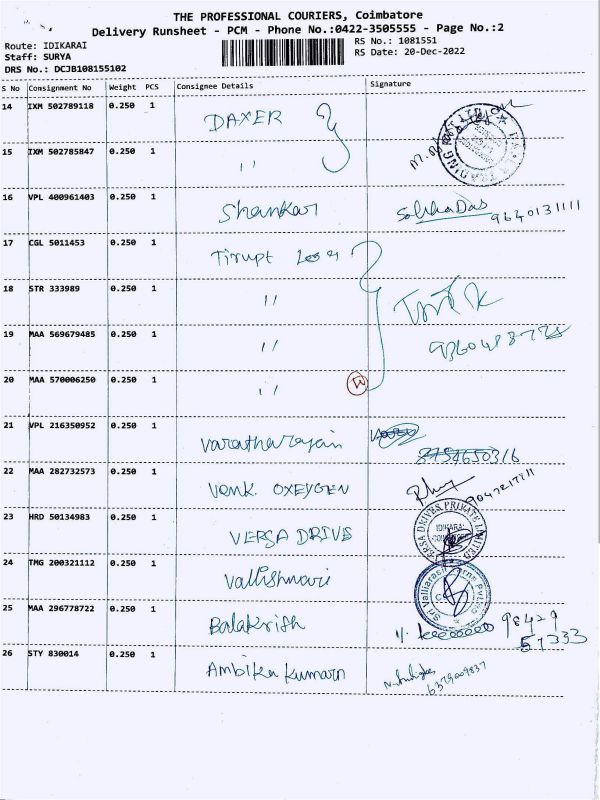 THE PROFESSIONAL COURIERS, Coimbatore
Delivery Runsheet - PCM - Phone No.:0422-3505555 - Page No.:2
Route: IDIKARAI
RS No.: 1081551
Staff: SURYA
RS Date: 20-Dec-2022
DRS No.: DCJB108155102
S No Consignment No Weight PCS Consignee Details Signature
14 IXM 502789118 0.250 1 DAXER
15 IXM 502785847 0.250 1 ,,
16 VPL 400961403 0.250 1 Shankar 9640131111
17 CGL 5011453 0.250 1 Tirupt
18 STR 333989 0.250 1 ,,
19 MAA 569679485 0.250 1 ,,
20 MAA 570006250 0.250 1 ,,
21 VPL 216350952 0.250 1 Varatharajan
8754650316
22 MAA 282732573 0.250 1 Venk. OXEYGEN
23 HRD 50134983 0.250 1 VERSA DRIVS
VERSA DRIVES PRIVATE LIMITED
IDIKARAI
24 TMG 200321112 0.250 1 Vallishwari
25 MAA 296778722 0.250 1 Balakrish 98429
51333
26 STY 830014 0.250 1 Ambika kumarn
6379009837